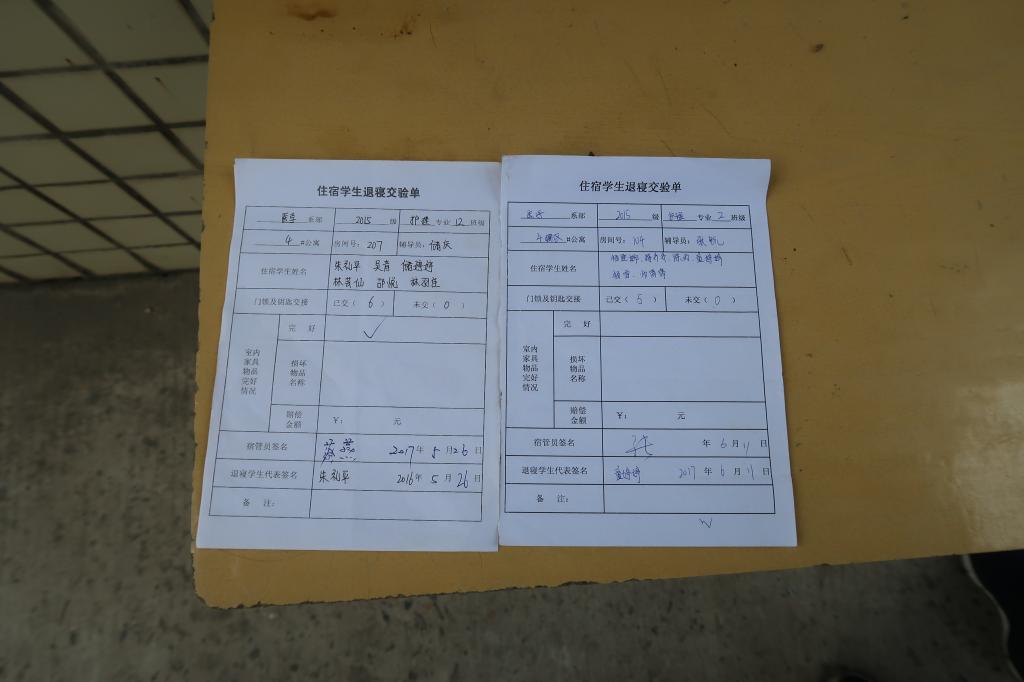 住宿学生退寝交验单
医学 系部 2015 级 护理 专业 12 班级
4 #公寓 房间号: 207 辅导员:
住宿学生姓名 朱礼平 吴青
林若仙 邵悦
门锁及钥匙交接 已交( 6 ) 未交( 0 )
室内家具物品完好情况
完 好 ✓
损坏物品名称
赔偿金额 ¥: 元
宿管员签名 2017年 5 月26日
退寝学生代表签名 朱礼平 2016年 5 月 26 日
备 注:
住宿学生退寝交验单
系部 2015 级 护理 专业 2 班级
#公寓 房间号: 辅导员:
住宿学生姓名
门锁及钥匙交接 已交( 5 ) 未交( 0 )
室内家具物品完好情况
完 好
损坏物品名称
赔偿金额 ¥: 元
宿管员签名 年 6 月 11 日
退寝学生代表签名 2017 年 6 月 11 日
备 注: